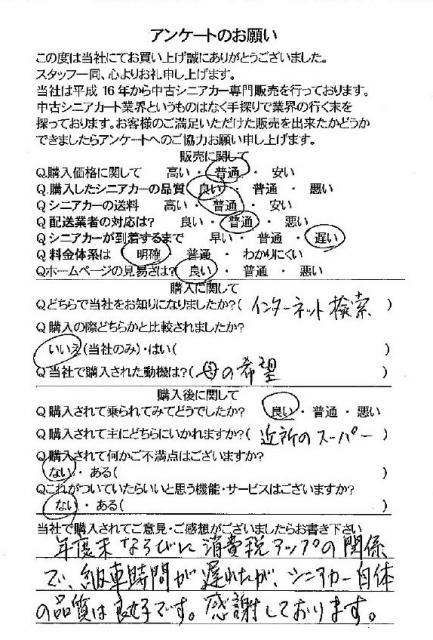 アンケートのお願い
この度は当社にてお買い上げ誠にありがとうございました。
スタッフ一同、心よりお礼申し上げます。
当社は平成 16年から中古シニアカー専門販売を行っております。
中古シニアカート業界というものはなく手探りで業界の行く末を
探っております。お客様のご満足いただけた販売を出来たかどうか
できましたらアンケートへのご協力お願い申し上げます。
販売に関して
Q.購入価格に関して 高い・普通・安い
Q.購入したシニアカーの品質 良い・普通・悪い
Q シニアカーの送料 高い・普通・安い
Q 配送業者の対応は? 良い・普通・悪い
Q シニアカーが到着するまで 早い・普通・遅い
Q 料金体系は 明確・普通・わかりにくい
Qホームページの見易さは? 良い・普通・悪い
購入に関して
Qどちらで当社をお知りになりましたか?( インターネット検索 )
Q 購入の際どちらかと比較されましたか?
いいえ(当社のみ)・はい( )
Q 当社で購入された動機は?( 母の希望 )
購入後に関して
Q 購入されて乗られてみてどうでしたか? 良い・普通・悪い
Q 購入されて主にどちらにいかれますか?( 近所のスーパー )
Q 購入されて何かご不満点はございますか?
ない・ある( )
Qこれがついていたらいいと思う機能・サービスはございますか?
ない・ある( )
当社で購入されてご意見・ご感想がございましたらお書き下さい
年度末ならびに消費税アップの関係
で、納車時間が遅れたが、シニアカー自体
の品質は良好です。感謝しております。